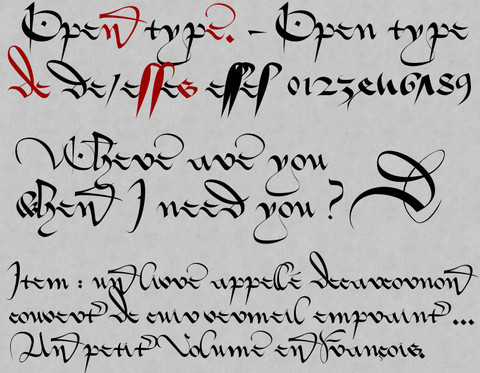 Open type. - Open type
de de/esses esses 0123456789
Where are you
when I need you ? D
Item : un livre appellé decameron
couvert de cuir vermeil empraint ...
Un petit Volume en François